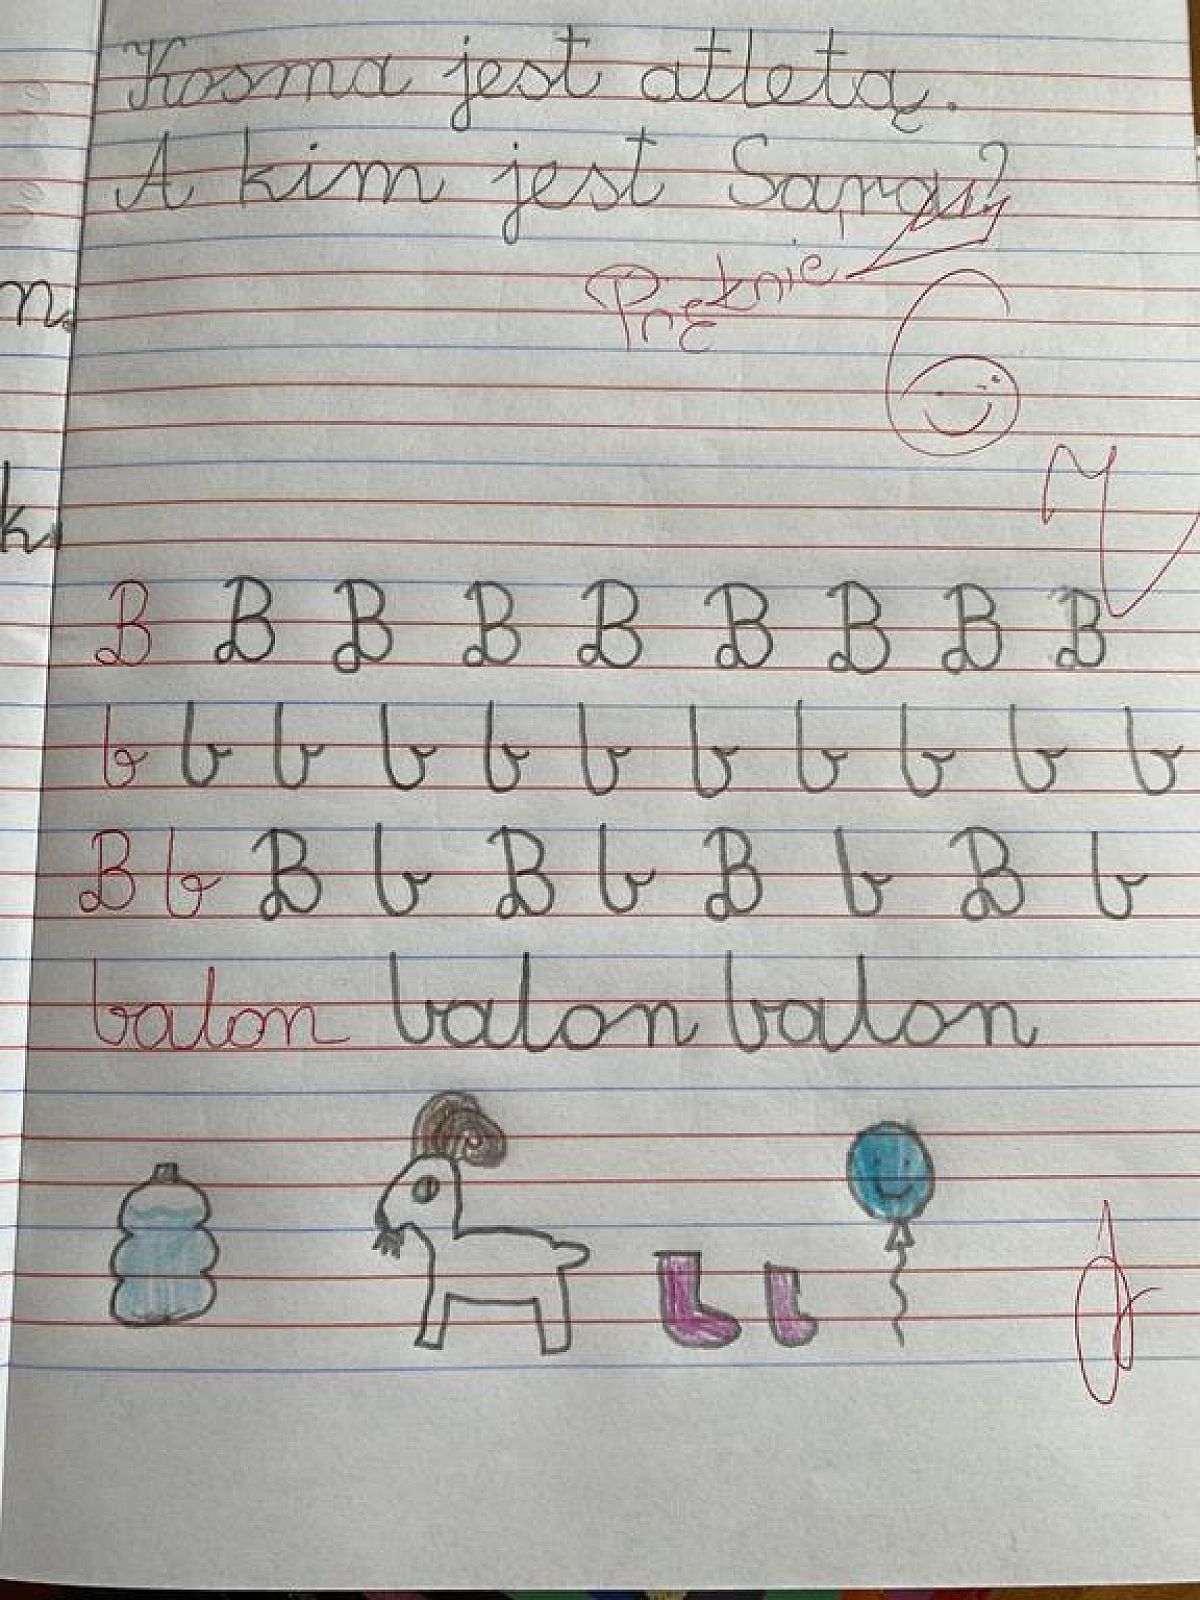 Kosma jest atletą.
A kim jest Sara?
Pięknie
n.
k.
B B B B B B B B B
b b b b b b b b b b b
B b B b B b B b B b
balon balon balon